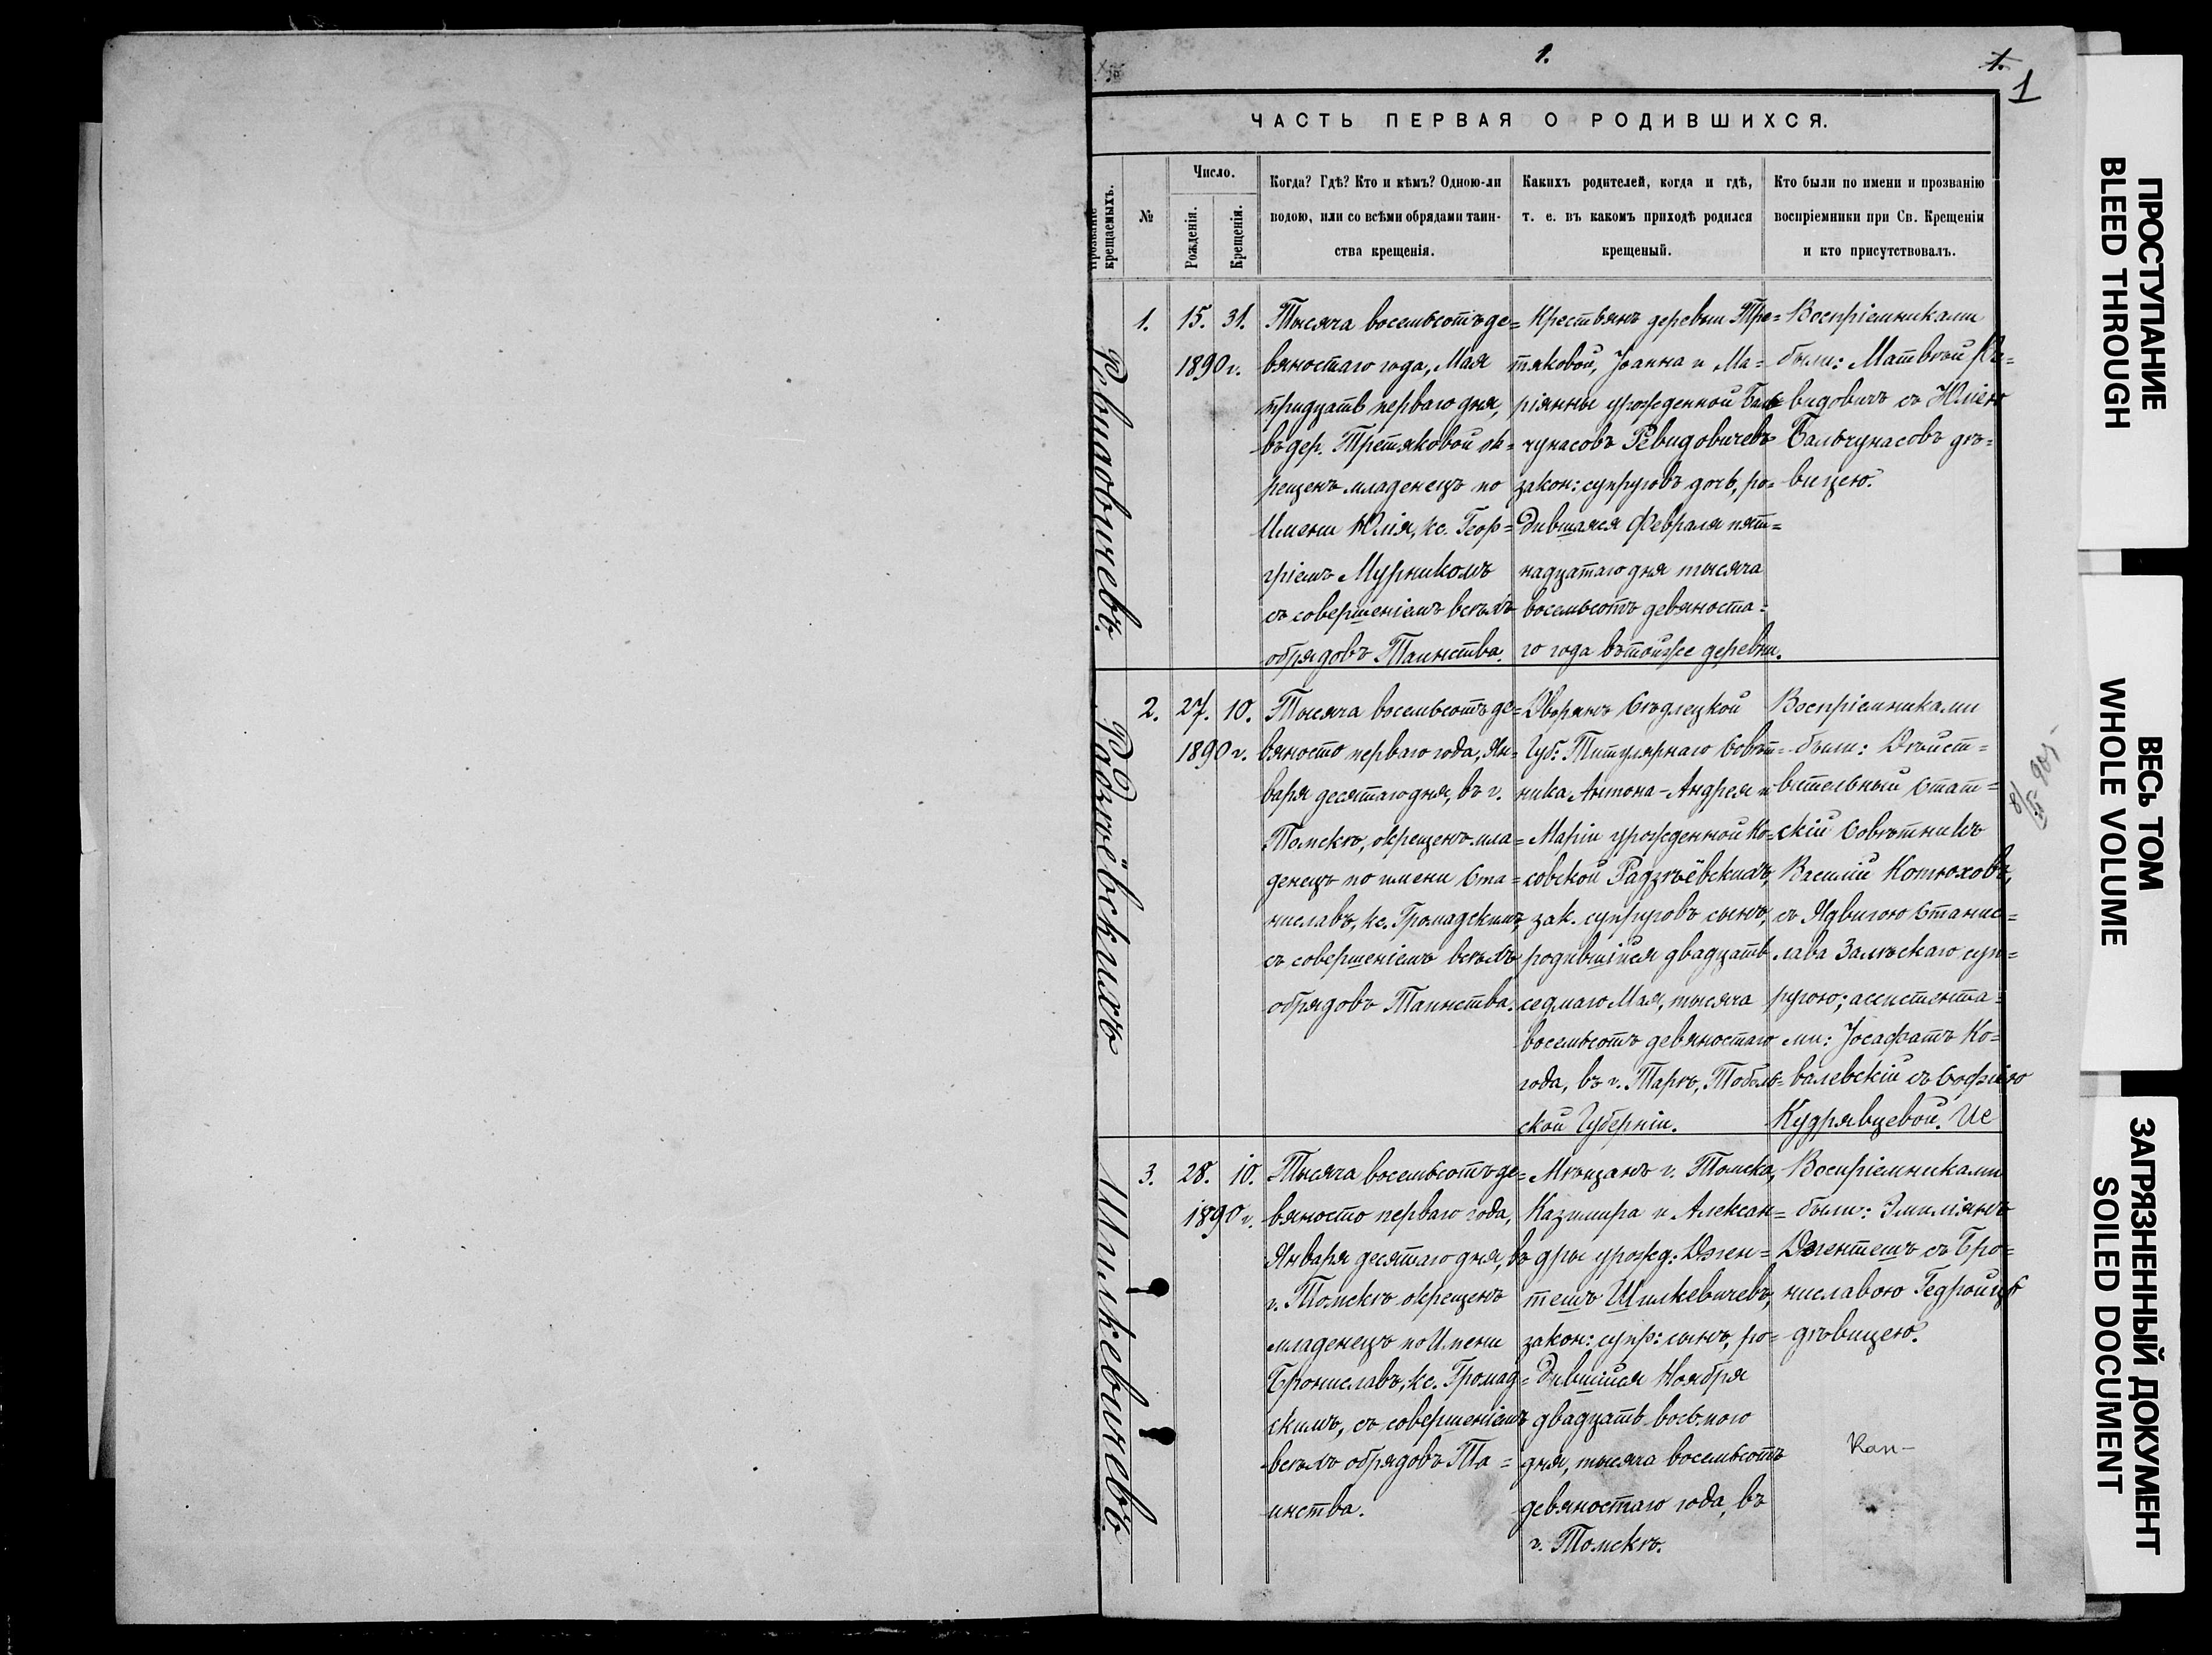 1.
1.
1
ЧАСТЬ ПЕРВАЯ О РОДИВШИХСЯ.
Прозваніе крещаемыхъ.
№
Число.
Рожденія.
Крещенія.
Когда? Гдѣ? Кто и кѣмъ? Одною-ли
водою, или со всѣми обрядами таин-
ства крещенія.
Какихъ родителей, когда и гдѣ,
т. е. въ какомъ приходѣ родился
крещеный.
Кто были по имени и прозванію
воспріемники при Св. Крещеніи
и кто присутствовалъ.
Рѣвидовичевъ.
1.
15. 31.
1890 г.
Тысяча восемьсотъ де=
вяностаго года, Мая
тридцать перваго дня,
въ дер. Третяковой ок=
рещенъ младенецъ по
Имени Юлія, кс. Геор=
гіемъ Мурникомъ
съ совершеніемъ всѣхъ
обрядовъ Таинства.
Крестьянъ деревни Тре=
тяковой, Іоанна и Ма=
ріянны урожденной Баль=
чунасовъ Рѣвидовичевъ
закон: супруговъ дочь, ро=
дившаяся Февраля пят=
надцатаго дня тысяча
восемьсотъ девяноста=
го года въ тойже деревни.
Воспріемниками
были: Матвѣй Рѣ=
видовичъ съ Юліею
Бальчунасовъ дѣ=
вицею.
Радзѣёвскихъ
2.
27. 10.
1890 г.
Тысяча восемьсотъ де=
вяносто перваго года, Ян=
варя десятаго дня, въ г.
Томскѣ, окрещенъ мла=
денецъ по имени Ста=
ниславъ, кс. Громадскимъ,
съ совершеніемъ всѣхъ
обрядовъ Таинства.
Дворянъ Сѣдлецкой
Губ: Титулярнаго Совѣт=
ника Антона-Андрея и
Маріи урожденной Ко=
совской Радзѣёвскихъ,
зак. супруговъ сынъ,
родившійся двадцать
седмаго Мая, тысяча
восемьсотъ девяностаго
года, въ г. Тарѣ, Тоболь=
ской Губерніи.
Воспріемниками
были: Дѣйст=
вительный Стат=
скій Совѣтникъ
Василій Котюховъ,
съ Ядвигою Станис=
лава Залѣскаго суп=
ругою; ассистента=
ми: Іосафатъ Ко=
валевскій съ Софіею
Кудрявцевой. Ис
Шилкевичевъ.
3.
28. 10.
1890 г.
Тысяча восемьсотъ де=
вяносто перваго года,
Января десятаго дня, въ
г. Томскѣ окрещенъ
младенецъ по Имени
Брониславъ, кс. Громад=
скимъ, съ совершеніемъ
всѣхъ обрядовъ Та=
инства.
Мѣщанъ г. Томска,
Казимира и Алексан=
дры урожд: Дзен=
тешъ Шилкевичевъ,
закон: супр: сынъ, ро=
дившійся Ноября
двадцать восьмого
дня, тысяча восемьсотъ
девяностаго года, въ
г. Томскѣ.
Воспріемниками
были: Эмиліянъ
Дзентешъ съ Бро=
ниславою Гедройцъ
дѣвицею.
Кап-
ПРОСТУПАНИЕ
BLEED THROUGH
ВЕСЬ ТОМ
WHOLE VOLUME
ЗАГРЯЗНЕННЫЙ ДОКУМЕНТ
SOILED DOCUMENT